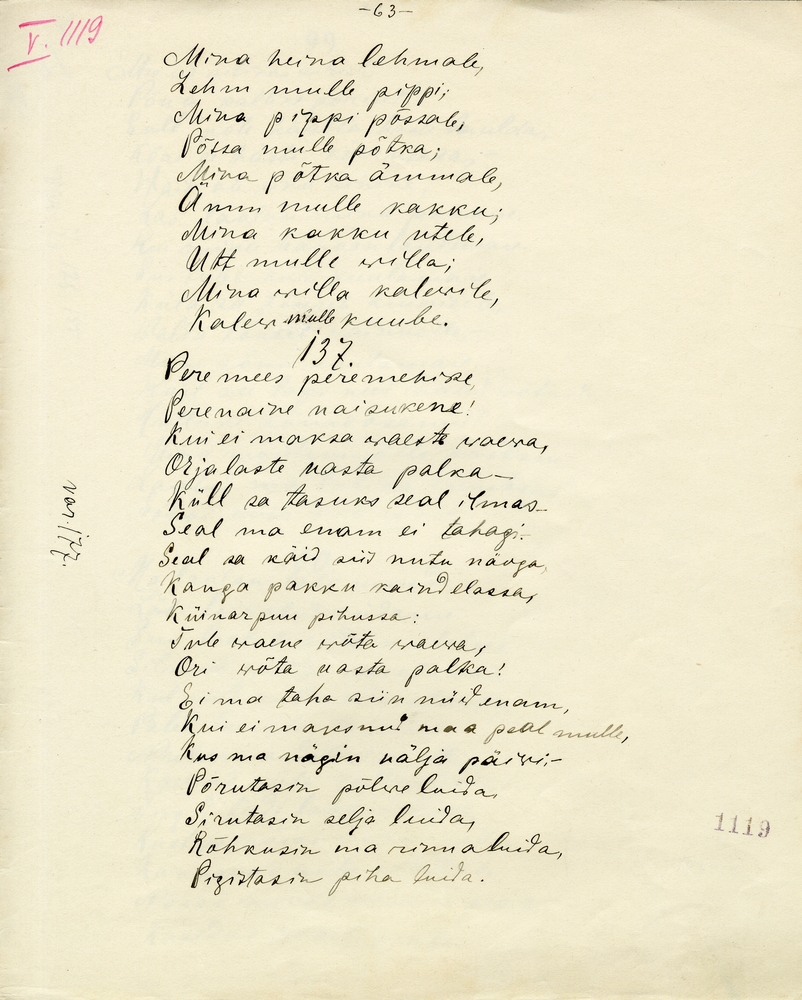 -63-
V. 1119
Mina heina lehmale,
Lehm mulle pippi;
Mina pippi põssale,
Põssa mulle põtka;
Mina põtka ämmale,
Ämm mulle kakku;
Mina kakku utele,
Utt mulle willa;
Mina willa kalewile,
Kalew mulle kuube.
137.
Peremees peremehike,
Perenaine naisukene!
Kui ei maksa waeste waewa,
Orjalaste uasta palka-
Küll sa tasuks seal ilmas-
Seal ma enam ei tahagi.-
Seal sa käid siis nutu näoga,
Kanga pakku kaindelassa,
Küinarpuu pihussa:
Tule waene wõta waewa,
Ori wõta uasta palka!
Ei ma taha siin nüid enam,
Kui ei maksnud maa peal mulle,
Kus ma nägin nälja päiwi,-
Põrutasin põlwe luida,
Sirutasin selja luida,
Rõhkusin ma rinna luida,
Pigistasin piha luida.
var. 177.
1119